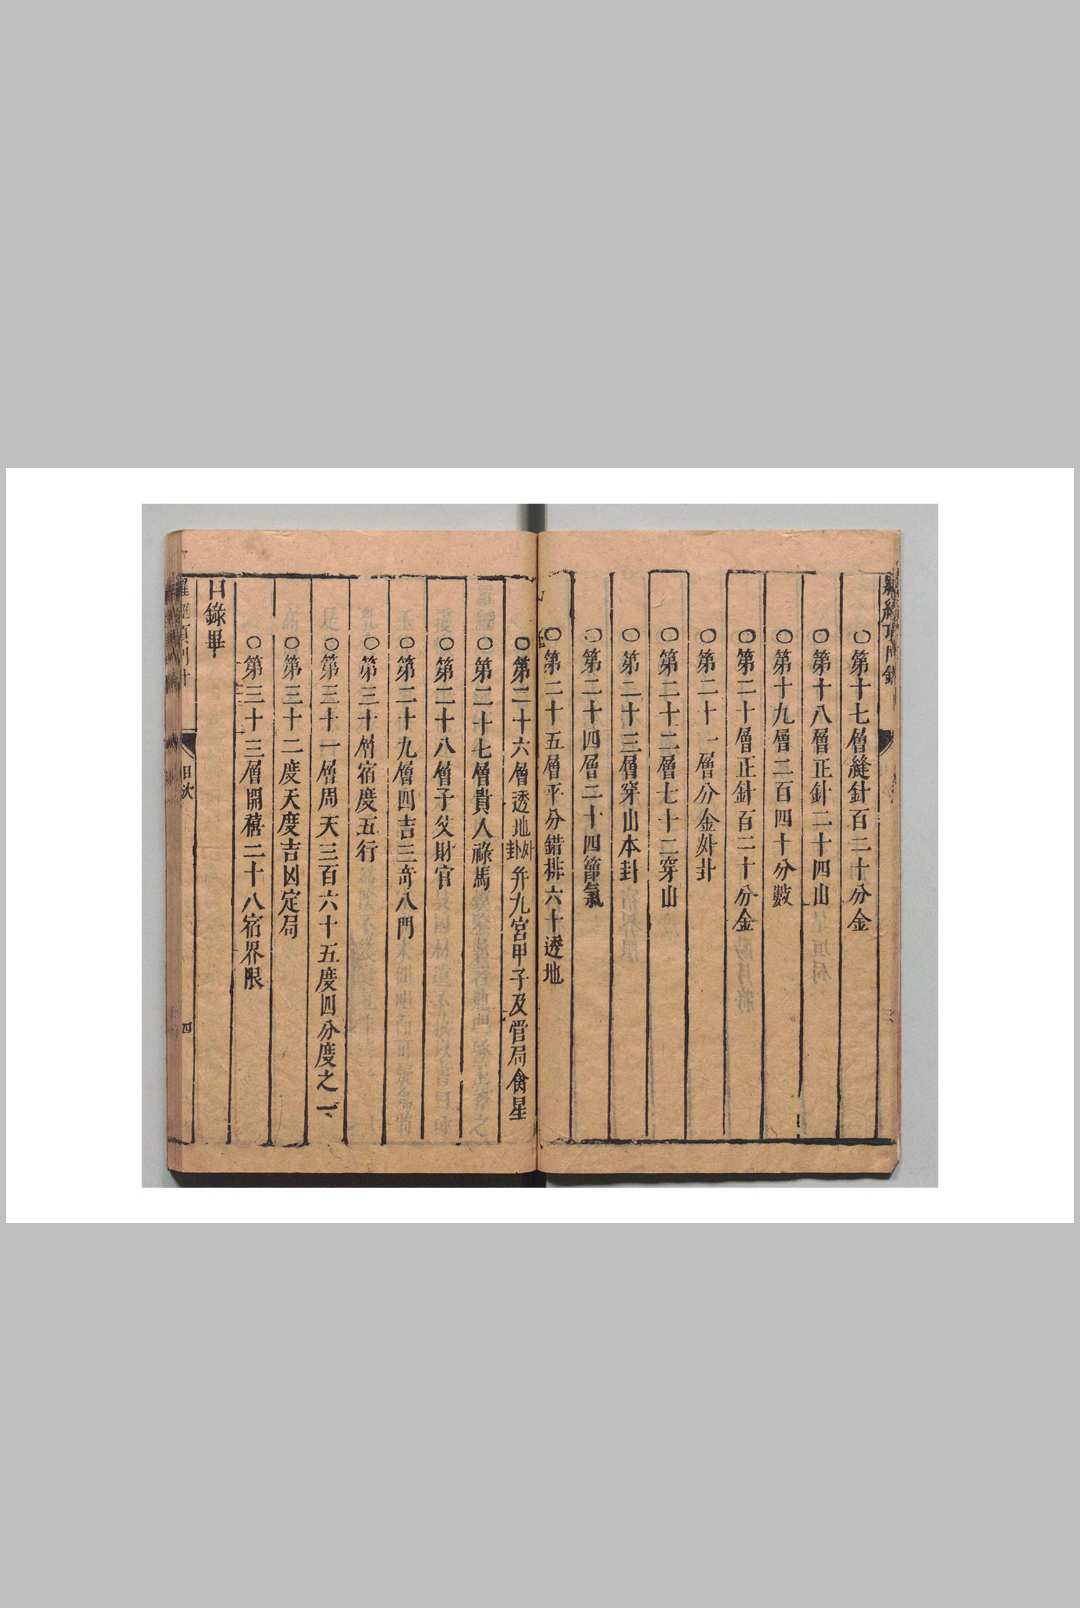 ○第十七層縫針百二十分金
○第十八層正針二十四山
○第十九層二百四十分數
○第二十層正針百二十分金
○第二十一層分金外卦
○第二十二層七十二穿山
○第二十三層穿山本卦
○第二十四層二十四節氣
○第二十五層平分錯排六十透地
○第二十六層透地卦外并九宮甲子及管局禽星
○第二十七層貴人祿馬
○第二十八層子父財官
○第二十九層四吉三奇八門
○第三十層宿度五行
○第三十一層周天三百六十五度四分度之一
○第三十二度天度吉凶定局
○第三十三層開禧二十八宿界限
目錄畢
羅經頂門針
目次
四